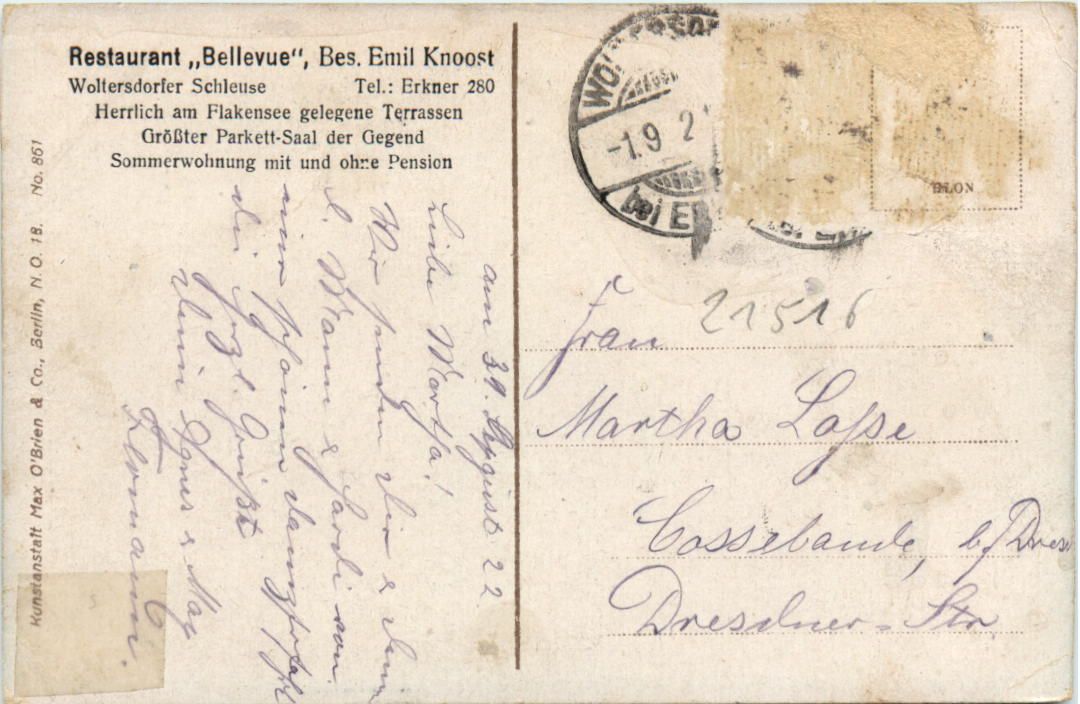 Restaurant „Bellevue“, Bes. Emil Knoost
Woltersdorfer Schleuse Tel.: Erkner 280
Herrlich am Flakensee gelegene Terrassen
Größter Parkett-Saal der Gegend
Sommerwohnung mit und ohne Pension
Kunstanstalt Max O'Brien & Co., Berlin, N.O. 18. No. 861
am 31. August 22.
Liebe Martha!
Wir senden Dir &
d. Mann & von
einer schönen Dampferfahrt
die herzl. Grüße
Deine &
-1.9 2
bei
BLON
21516
Frau
Martha Lasse
Cossebaude, b/Dresd
Dresdner-Str.